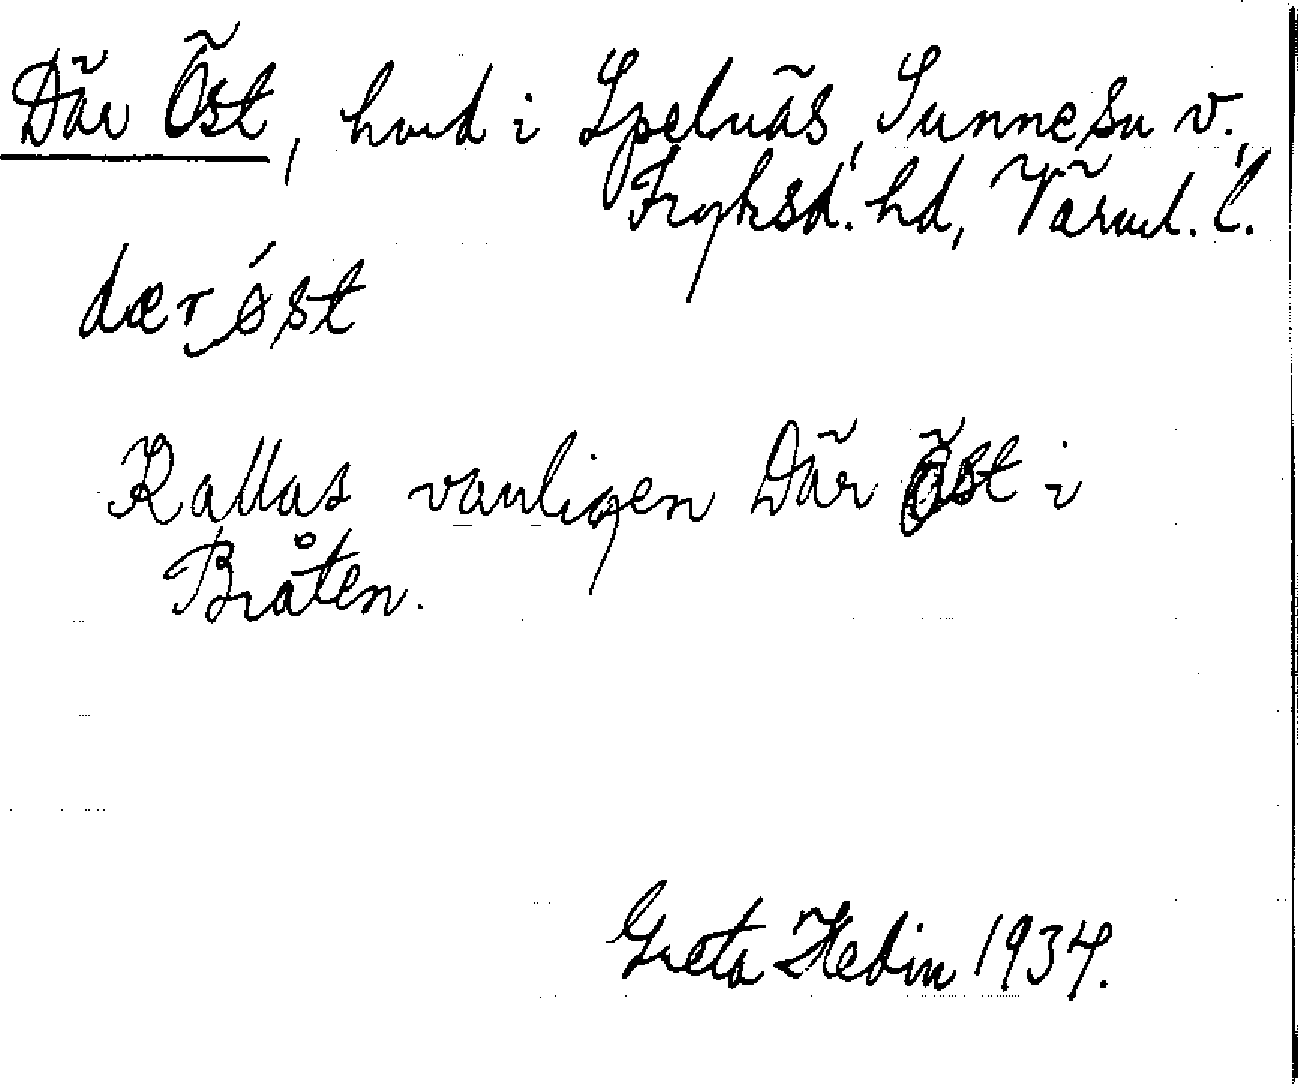 Där Öst, hmd i Spelnäs, Sunne sn v.,
Fryksd. hd, Värml. l.
dær‿ǿst
Kallas vanligen Där Öst i
Bråten.
Greta Hedin 1934.